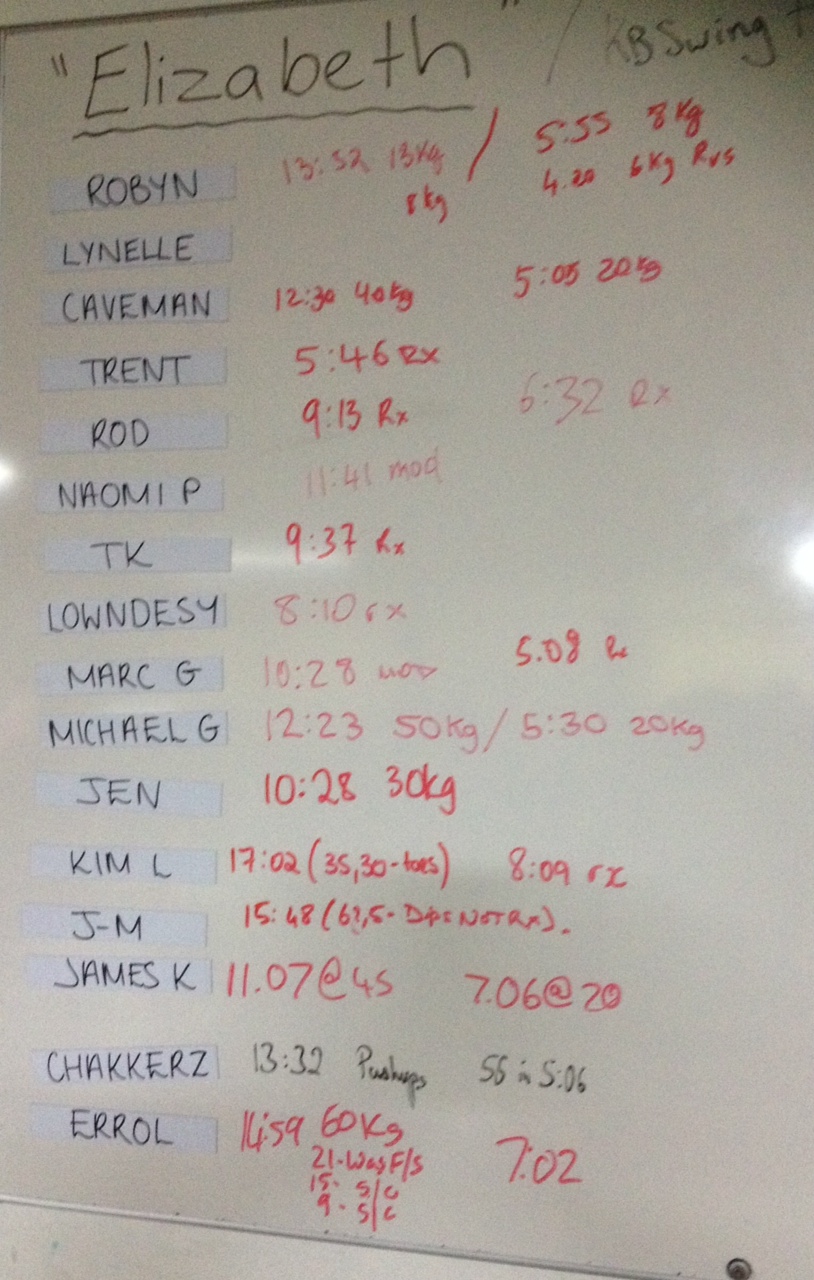 "Elizabeth" / KB Swing +
ROBYN 13:52 13Kg / 5:55 8Kg
8kg 4.20 6Kg Rvs
LYNELLE
CAVEMAN 12:30 40kg 5:05 20kg
TRENT 5:46 Rx
ROD 9:13 Rx 6:32 Rx
NAOMI P 11:41 mod
TK 9:37 Rx
LOWNDESY 8:10 rx
MARC G 10:28 5.08
MICHAEL G 12:23 50Kg / 5:30 20Kg
JEN 10:28 30kg
KIM L 17:02 (35,30-toes) 8:09 rx
J-M 15:48 (62,5- Dips Not Rx).
JAMES K 11.07@45 7.06@20
CHAKKERZ 13:32 Pushups 55 in 5:06
ERROL 14:59 60Kg 7:02
21-Was F/S
15- S/C
9- S/C